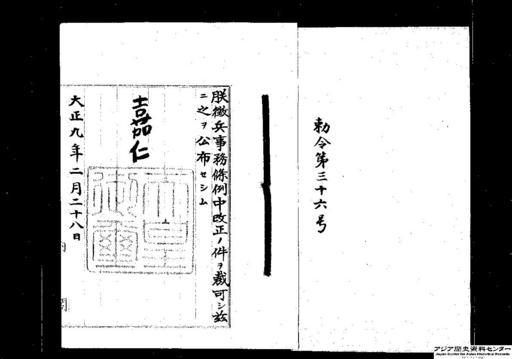 勅令第三十六号
朕徴兵事務條例中改正ノ件ヲ裁可シ玆
ニ之ヲ公布セシム
嘉仁
天皇御璽
大正九年二月二十八日
内閣
アジア歴史資料センター
Japan Center for Asian Historical Records